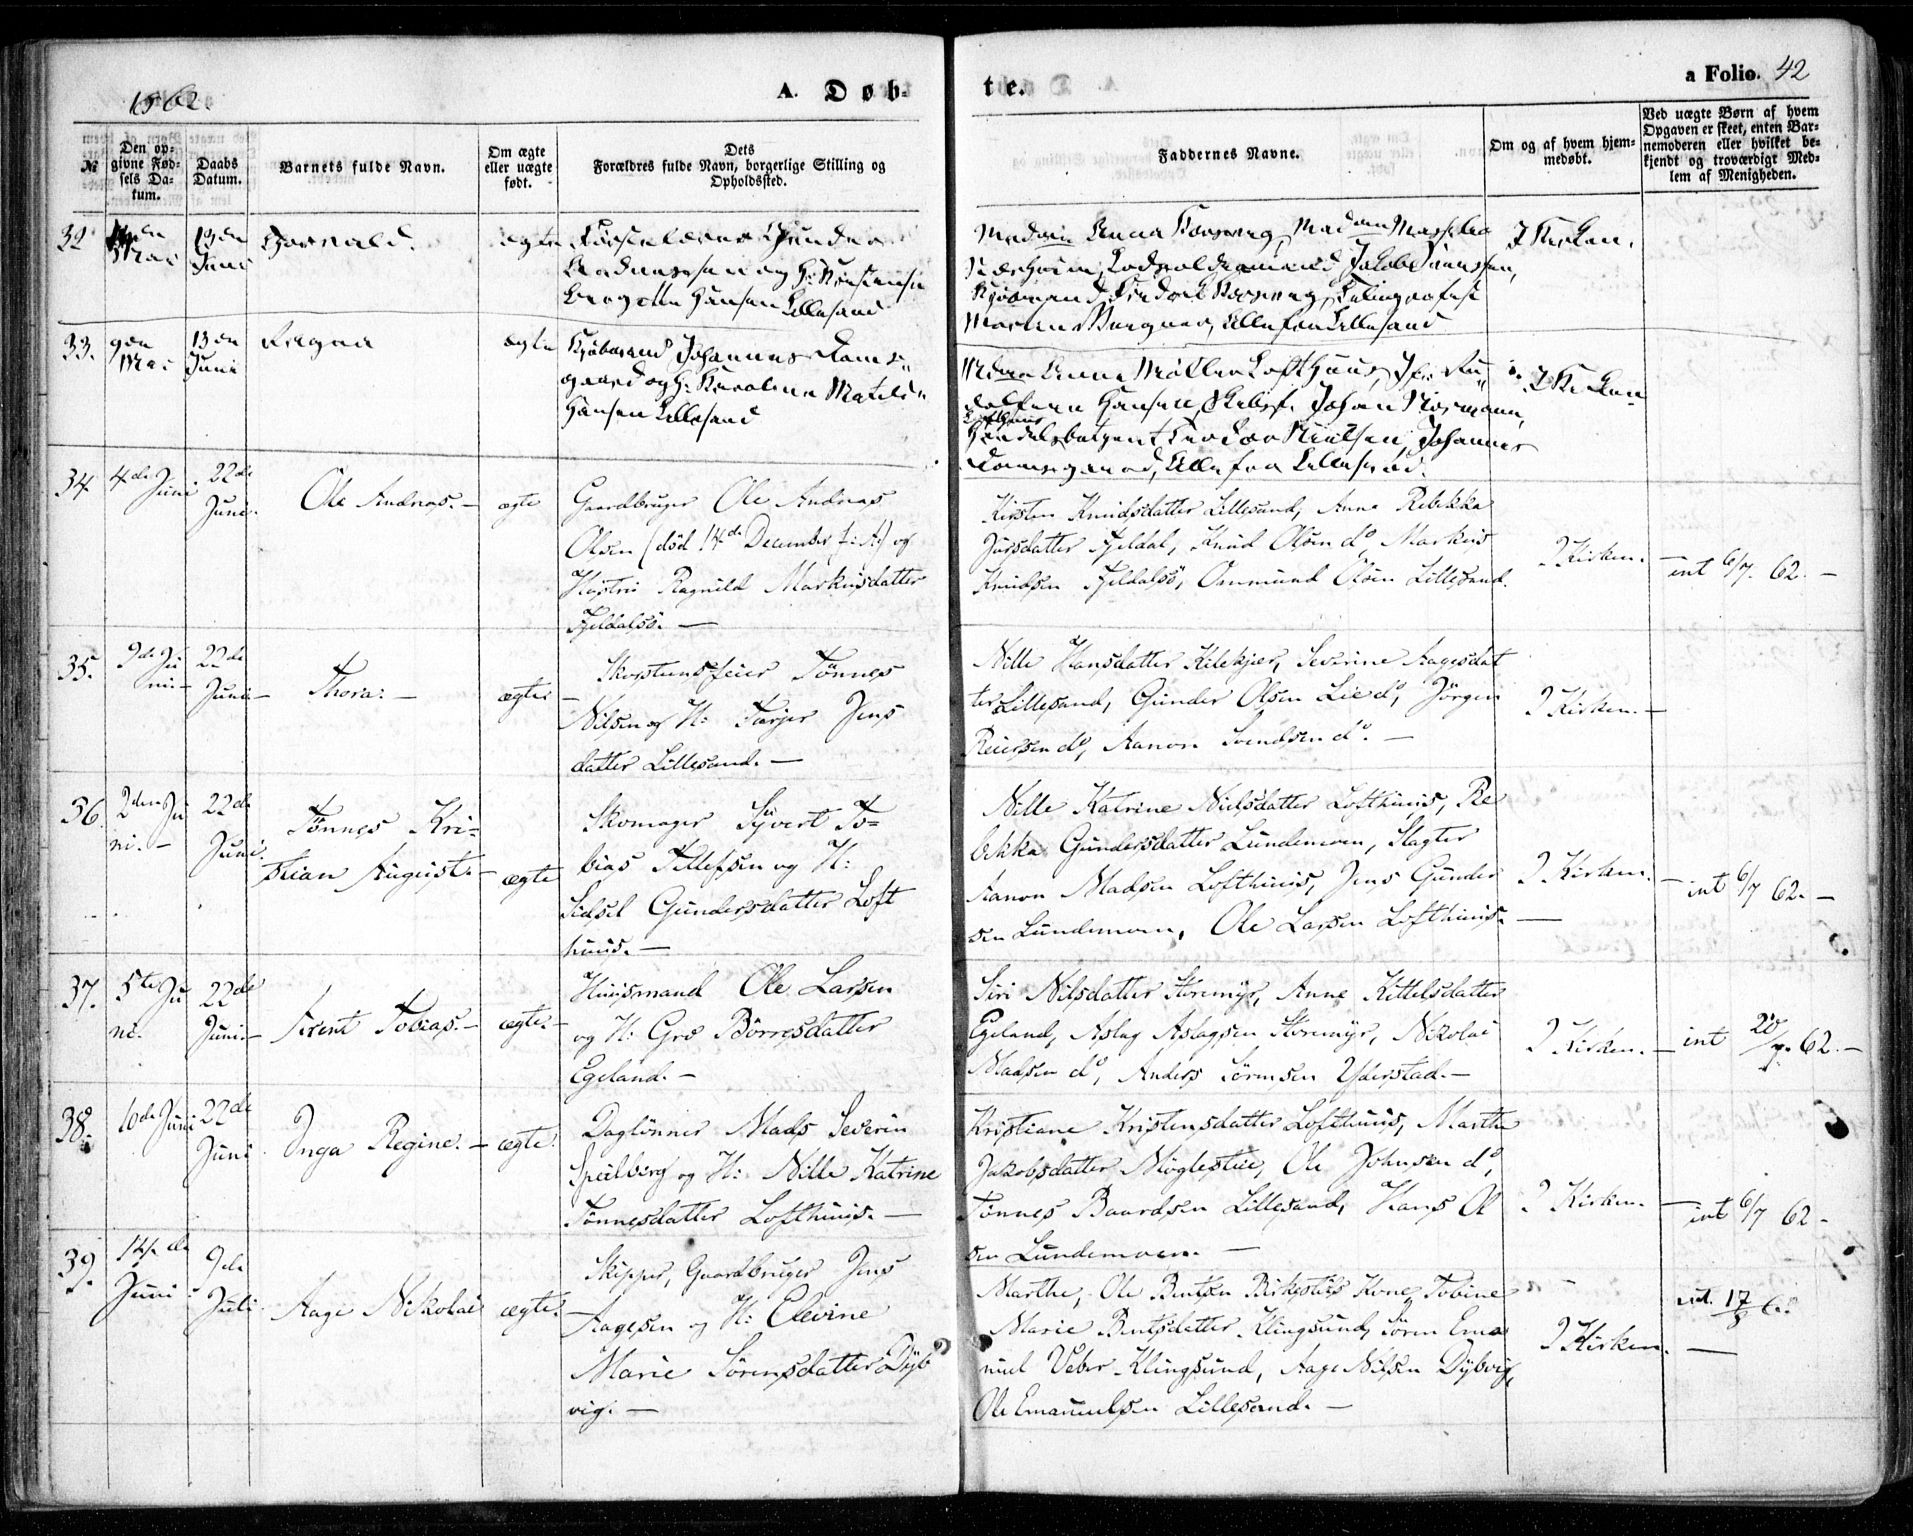 1862.
A. Døb-
te.
a Folio. 42
№
Den op-
givne Fød-
sels Da-
tum.
Daabs
Datum.
Barnets fulde Navn.
Om ægte
eller uægte
født.
Dets
Forældres fulde Navn, borgerlige Stilling og
Opholdssted.
Faddernes Navne.
Om og af hvem hjem-
medøbt.
Ved uægte Børn af hvem
Opgaven er skeet, enten Bar-
nemoderen eller hvilket be-
kjendt og troværdigt Med-
lem af Menigheden.
32
Mai
13den
Juni
ægte
og H:
Hansen Lillesand
Madam Anna
Jakob
Kjøbmand
Alle fra Lillesand
I Kirken.
33.
9de
Mai
13den
Juni
Ragna
ægte
Kjøbmand Johannes
gaard og H: Karoline Matilde
Hansen Lillesand
Anne Møller Lofthuus, Jfr. Ru-
Hansen, Johan
Nielsen, Johannes
Alle fra Lillesand.
I Kirken
34
4de Juni
22de
Juni.
Ole Andreas. —
ægte
Gaardbruger Ole Andreas
Olsen (død 14de December f: A:) og
Hustru Ragnild Markusdatter
Fjeldalsø. —
Kirsten Knudsdatter Lillesand, Anne Rebekka
datter Fjeldal, Knud Olsen do, Markus
Knudsen Fjeldalsø, Ommund Olsen Lillesand.
I Kirken. —
int 6/7. 62. —
35.
9de Ju
ni. —
22de
Juni —
Thora. —
ægte —
Skorstensfeier Tønnes
Nilsen og H: Tarjer Jens
datter Lillesand. —
Nille Hansdatter Kilekjær, Severine Aagesdat
ter Lillesand, Gunder Olsen Lie do, Jørgen
Reiersen do, Aanon Svendsen do. —
I Kirken. —
36
2den Ju
ni. —
22de
Juni.
Tønnes Kri-
stian August. —
ægte
Skomager Syvert To-
bias Tellefsen og H:
Sidsel Gundersdatter Loft
huus. —
Nille Katrine Nielsdatter Lofthuus, Re
bekka Gundersdatter Lundemoen, Slagter
Aanon Madsen Lofthuus, Jens Gunder
sen Lundemoen, Ole Larsen Lofthuus. —
I Kirken. —
int 6/7 62. —
37.
5te Ju
ni.
22de
Juni —
Tobias. —
ægte. —
Huusmand Ole Larsen
og H: Gro Børresdatter
Egeland. —
Siri Nilsdatter Storemyr, Anne Kittelsdatter
Egeland, Aslag Aslagsen Storemyr, Nikolai
Madsen do, Anders Sørensen Yderstad. —
I Kirken. —
int 20/7. 62. —
38.
10de Juni
22de
Juni
Inga Regine. —
ægte.
Daglønner Mads Severin
Speilberg og H: Nille Katrine
Tønnesdatter Lofthuus. —
Kristiane Kristensdatter Lofthuus, Marthe
Jakobsdatter Møglestue, Ole Johnsen do,
Tønnes Baardsen Lillesand, Hans Ol
sen Lundemoen. —
I Kirken. —
int 6/7 62 —
39.
14de
Juni
9de
Juli
Aage Nikolai
ægte. —
Skipper, Gaardbruger Jens
Aagesen og H: Elevine
Marie Sørensdatter Dyb
vig. —
Marthe, Ole Bentsen Birkestøls Kone, Tobine
Marie Bentsdatter Klingsund, Søren Ema
nuel Veber Klingsund, Aage Nilsen Dybvig,
Ole Emanuelsen Lillesand. —
I Kirken. —
int. 17/8 62